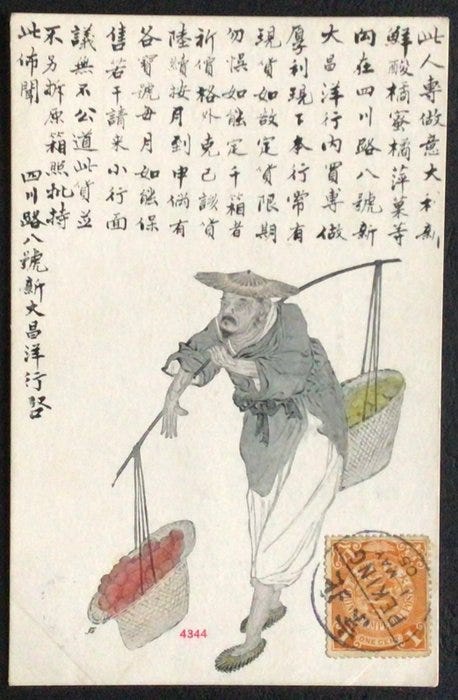 此人專做意大利新
鮮酸橘蜜橘萍菓等
向在四川路八號新
大昌洋行内買專做
厚利現下本行常有
現貨如欲定貨限期
勿悮如能定千箱者
祈價格外克己該貨
陸續按月到申倘有
各寶號每月如能保
售若干請来小行面
議無不公道此貨並
不另拆原箱照批特
此佈聞
四川路八號新大昌洋行啓
4344
PEKING
ONE CENT